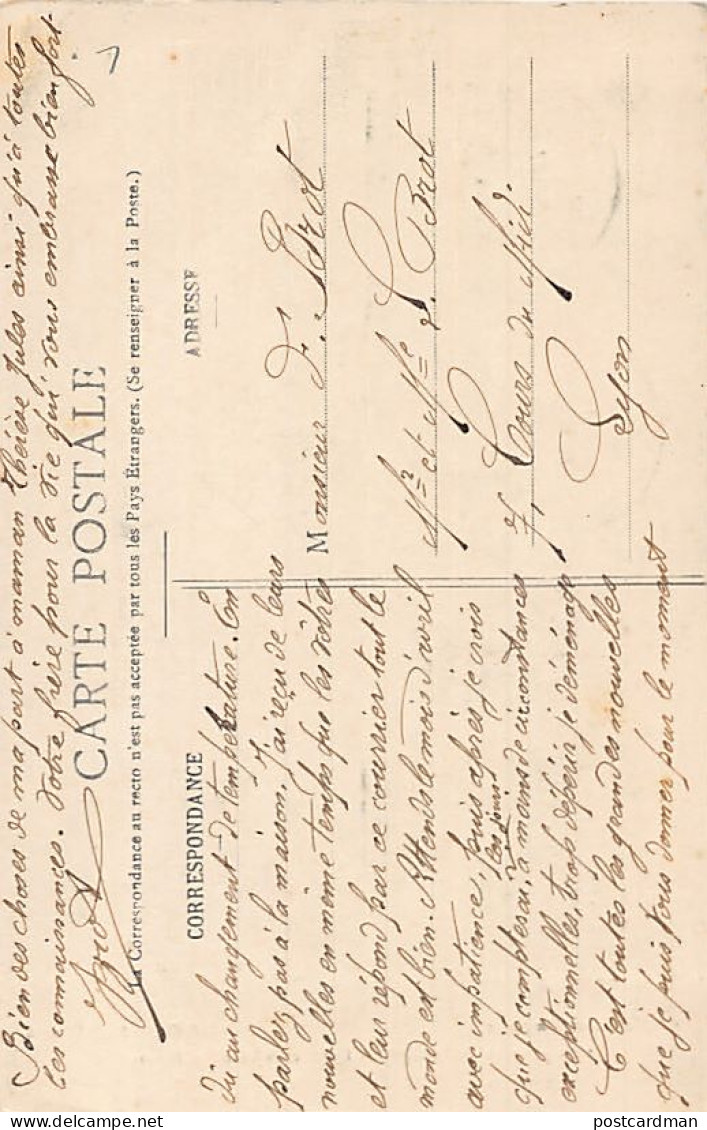 Bien des choses de ma part à maman Thérèse Jules ainsi qu'à toutes
les connaissances. Votre frère pour la vie qui vous embrasse bien fort
CARTE POSTALE
La Correspondance au recto n'est pas acceptée par tous les Pays Étrangers. (Se renseigner à la Poste.)
CORRESPONDANCE
dû au changement de température. On
parlez pas à la maison. J'ai reçu de leurs
nouvelles en même temps que les vôtres
et leur répond par ce courrier tout le
monde est bien. Attends le mois d'avril
avec impatience, puis après je crois
les jours
que je compterai, à moins de circonstances
exceptionnelles, trop dépérir je déménage
C'est toutes les grandes nouvelles
que je puis vous donner pour le moment
ADRESSE
Monsieur F. Brot
Mr et Mlle L. Brot
7, Cours du Midi.
Lyon
postcardman